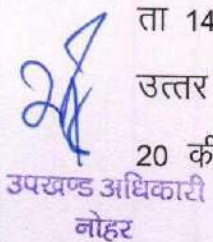 ता 14
उत्तर
20 की
उपखण्ड अधिकारी
नोहर